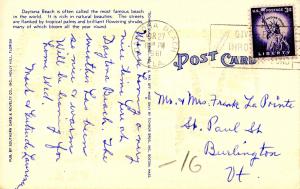 Daytona Beach is often called the most famous beach
in the world. It is rich in natural beauties. The streets
are flanked by tropical palms and brilliant flowering shrubs,
many of which bloom all the year round.
Were having a very
nice time here at
Daytona Beach. The
weather has been
so nice & warm.
Will be leaving for
home Wed.
Mad & Gertrude
PUB. BY SOUTHERN CARD & NOVELTY CO., INC., HOLLY HILL, FLORIDA
POST CARD
U.S. POSTAGE
3¢
LIBERTY
Mr. & Mrs. Frank La Pointe
St. Paul St
Burlington
Vt.
-16